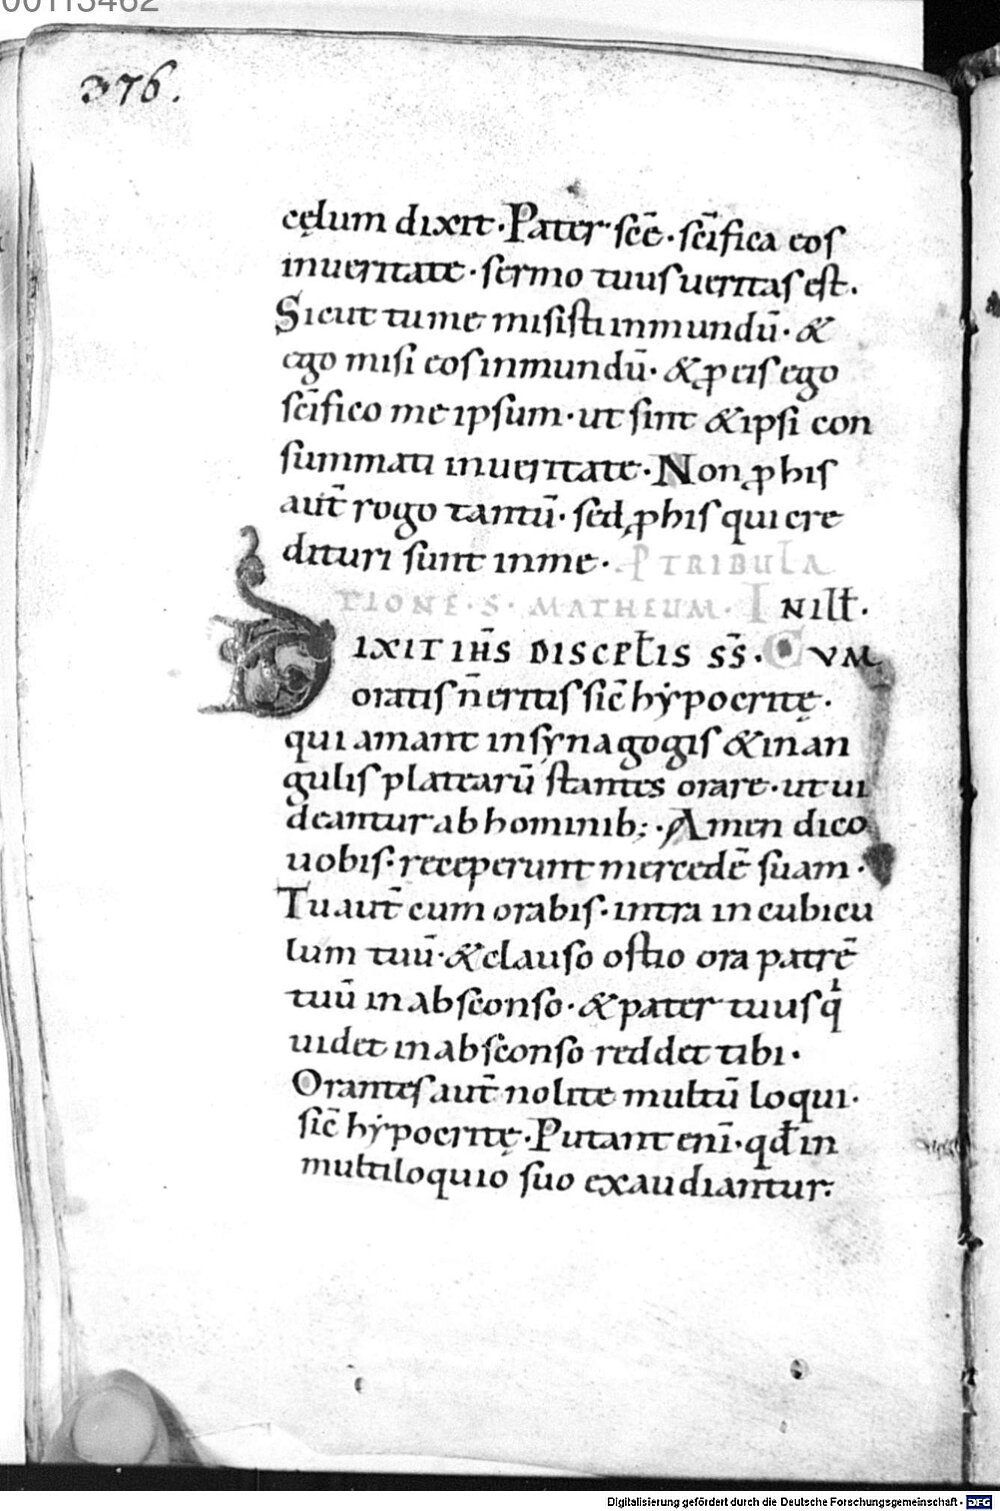 00113462
376.
cęlum dixit · Pater sc̄e · sc̄ifica eos
inueritate · sermo tuus ueritas est.
Sicut tu me misisti inmundū · &
ego misi eos inmundū · & ꝓ eis ego
sc̄ifico me ipsum · ut sint & ipsi con
summati inueritate · Non ꝓ his
aut̄ rogo tantū · sed ꝓ his qui cre
dituri sunt inme · P̄ TRIBULA
TIONE · S · MATHEUM · IN ILL̄ ·
DIXIT IH̄S DISCPL̄IS SS̄ · CVM
oratis n̄ eritis sic̄ hẏpocritę ·
qui amant in sẏnagogis & in an
gulis platearū stantes orare · ut ui
deantur ab hominib; · Amen dico
uobis · receperunt mercedē suam ·
Tu aut̄ cum orabis · intra in cubicu
lum tuū · & clauso ostio ora patrē
tuū in absconso · & pater tuus qͥ
uidet in absconso reddet tibi ·
Orantes aut̄ nolite multū loqui ·
sic̄ hẏpocritę · Putant enī · qd̄ in
multiloquio suo exaudiantur:
Digitalisierung gefördert durch die Deutsche Forschungsgemeinschaft - DFG